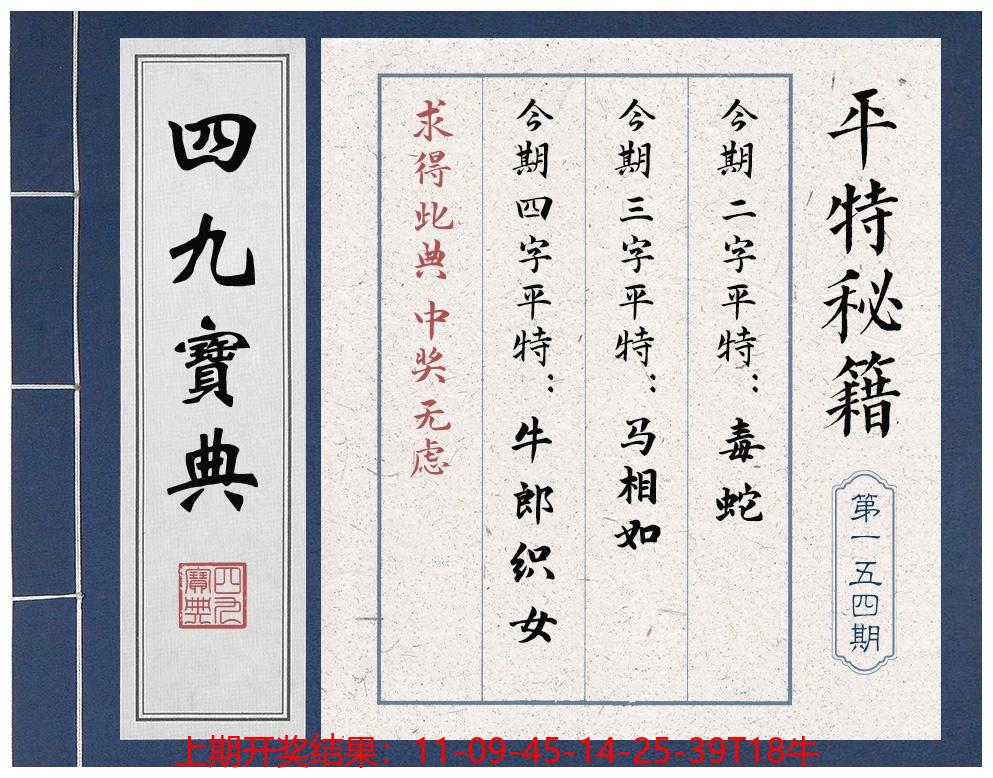 平特秘籍
第一五四期
今期二字平特：毒蛇
今期三字平特：马相如
今期四字平特：牛郎织女
求得此典 中奖无虑
四九寶典
四九寶典
上期开奖结果：11-09-45-14-25-39T18牛